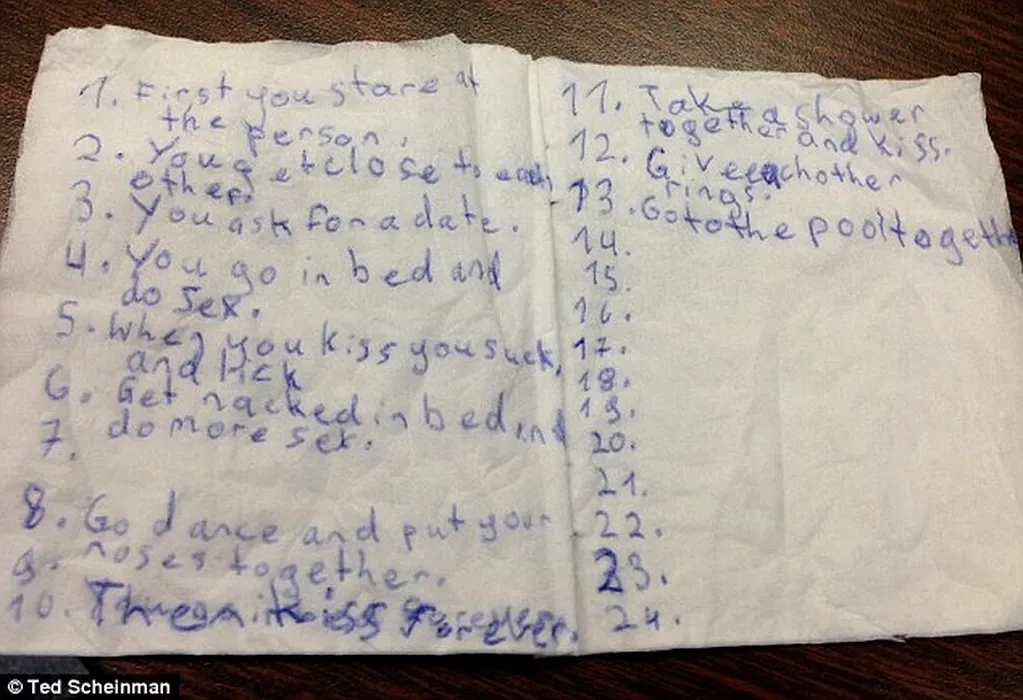 1. First you stare at
the person.
2. You get close to each
other.
3. You ask for a date.
4. You go in bed and
do sex.
5. When you kiss you suck
and lick
6. Get nacked in bed and
7. do more sex.
8. Go dance and put your
9. noses together.
10. kiss forever.
11. Take a shower
together and kiss.
12. Give eachother
rings.
13. Go to the pool together
14.
15.
16.
17.
18.
19.
20.
21.
22.
23.
24.
© Ted Scheinman